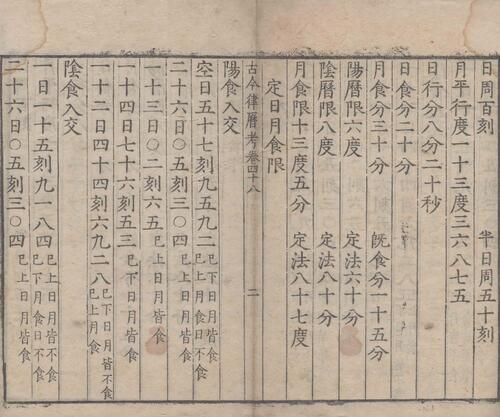 日周百刻　半日周五十刻
月平行度一十三度三六八七五
日行分八分二十秒
日食分二十分
月食分三十分　旣食分一十五分
陽曆限六度　定法六十分
陰曆限八度　定法八十分
月食限十三度五分　定法八十七度
定日月食限
古今律曆考卷四十八　二
陽食入交
空日五十七刻九五九二巳下日月皆食巳上月食日不食
二十六日〇五刻三〇四巳上日月皆食
一十三日〇二刻六五巳上日月皆食
一十四日七十六刻五三巳下日月皆食
一十二日四十四刻六九二八巳下日月皆不食巳上月食
陰食入交
一日一十五刻九一八四巳上日月皆不食巳下月食日不食
二十六日〇五刻三〇四巳上日月皆食